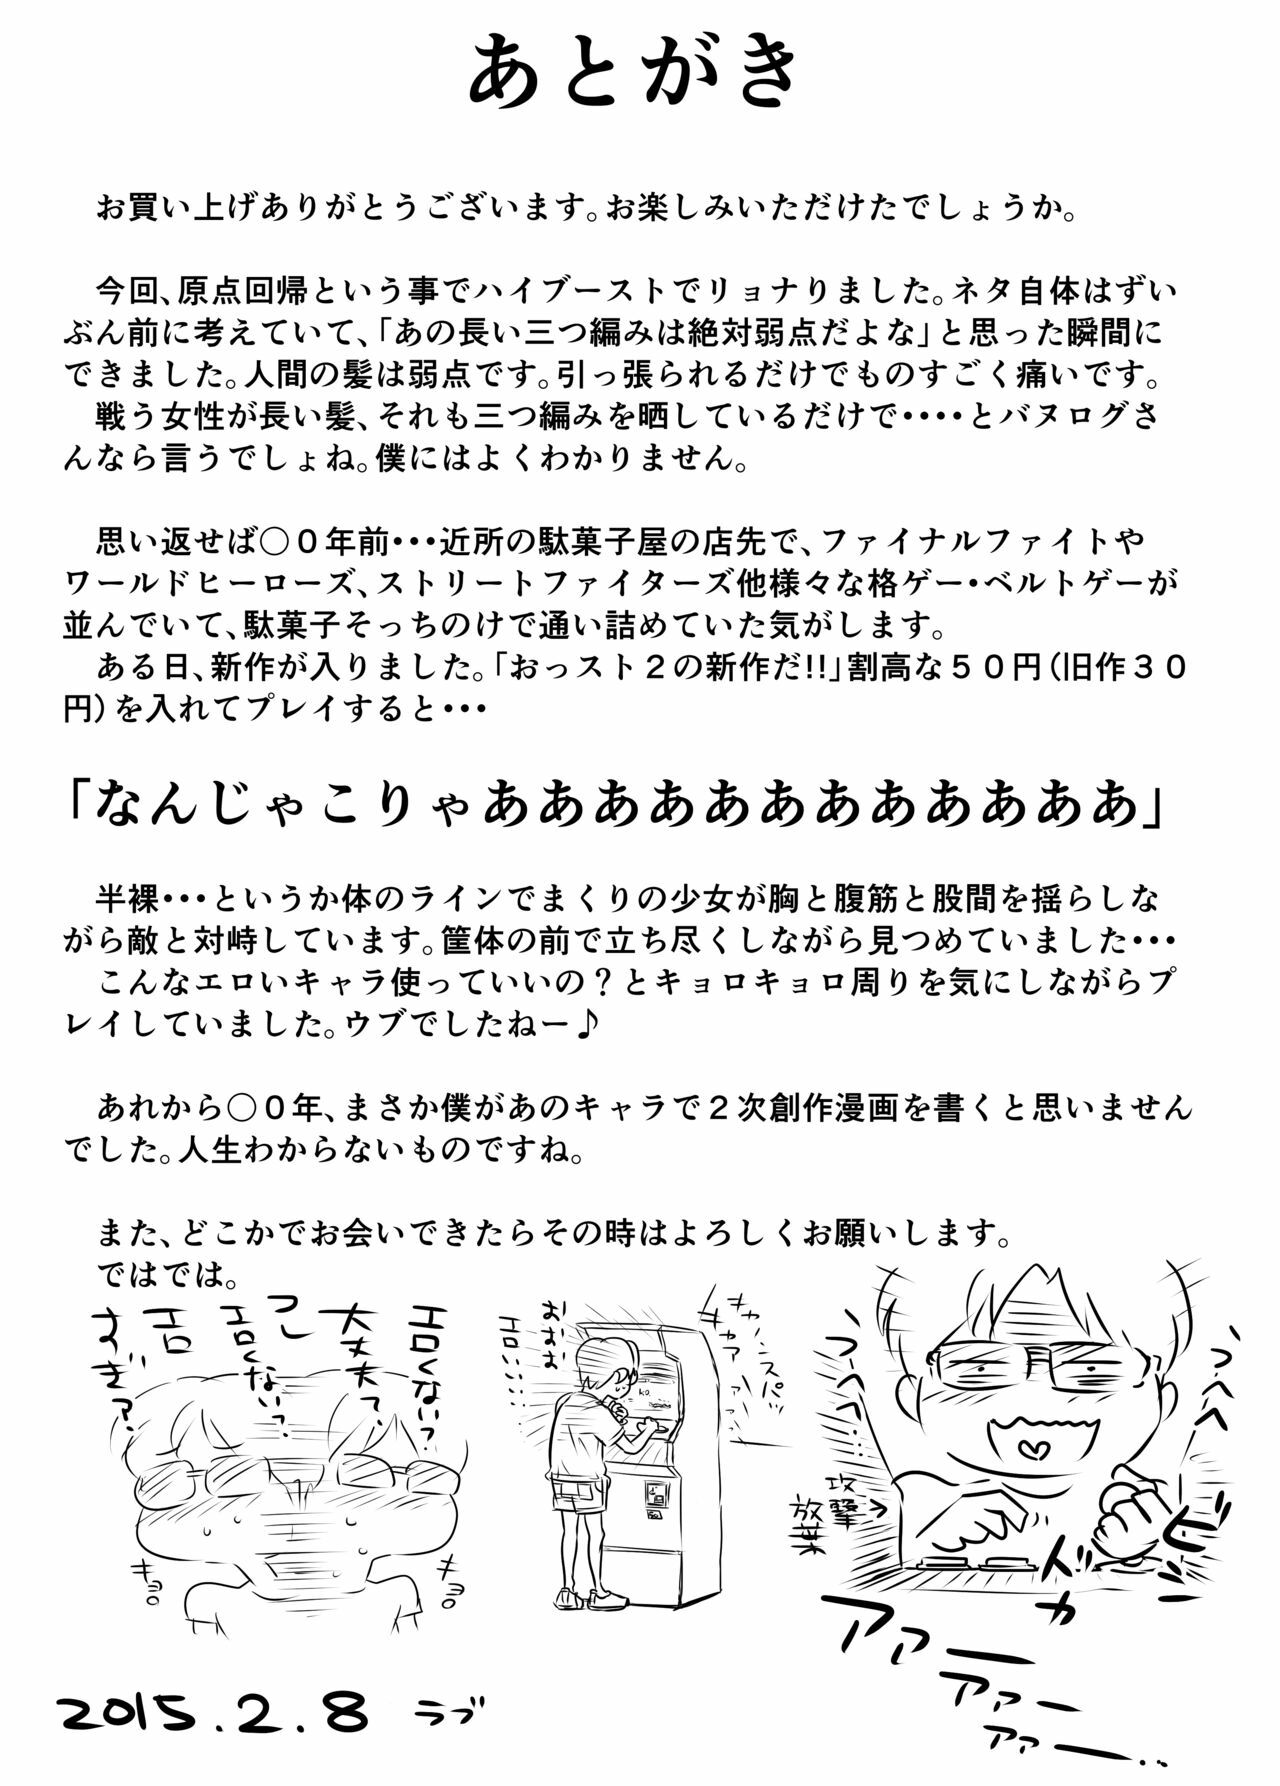 あとがき
お買い上げありがとうございます。お楽しみいただけたでしょうか。
今回、原点回帰という事でハイブーストでリョナりました。ネタ自体はずい
ぶん前に考えていて、「あの長い三つ編みは絶対弱点だよな」と思った瞬間に
できました。人間の髪は弱点です。引っ張られるだけでものすごく痛いです。
戦う女性が長い髪、それも三つ編みを晒しているだけで・・・・とバヌログさ
んなら言うでしょね。僕にはよくわかりません。
思い返せば○０年前・・・近所の駄菓子屋の店先で、ファイナルファイトや
ワールドヒーローズ、ストリートファイターズ他様々な格ゲー・ベルトゲーが
並んでいて、駄菓子そっちのけで通い詰めていた気がします。
ある日、新作が入りました。「おっスト２の新作だ!!」割高な５０円（旧作３０
円）を入れてプレイすると・・・
「なんじゃこりゃああああああああああああ」
半裸・・・というか体のラインでまくりの少女が胸と腹筋と股間を揺らしな
がら敵と対峙しています。筐体の前で立ち尽くしながら見つめていました・・・
こんなエロいキャラ使っていいの？とキョロキョロ周りを気にしながらプ
レイしていました。ウブでしたねー♪
あれから○０年、まさか僕があのキャラで２次創作漫画を書くと思いません
でした。人生わからないものですね。
また、どこかでお会いできたらその時はよろしくお願いします。
ではでは。
エロくない？
大丈夫？
コレ
エロくない？
エロ
すぎ？
キョロ
キョロ
おおお
エロい・・・
キャノンスパイ
キャア
K.O.
っへへ
っへへ…
攻撃
放棄
ビ
アァー
アァー
アァー..
2015.2.8 ラブ